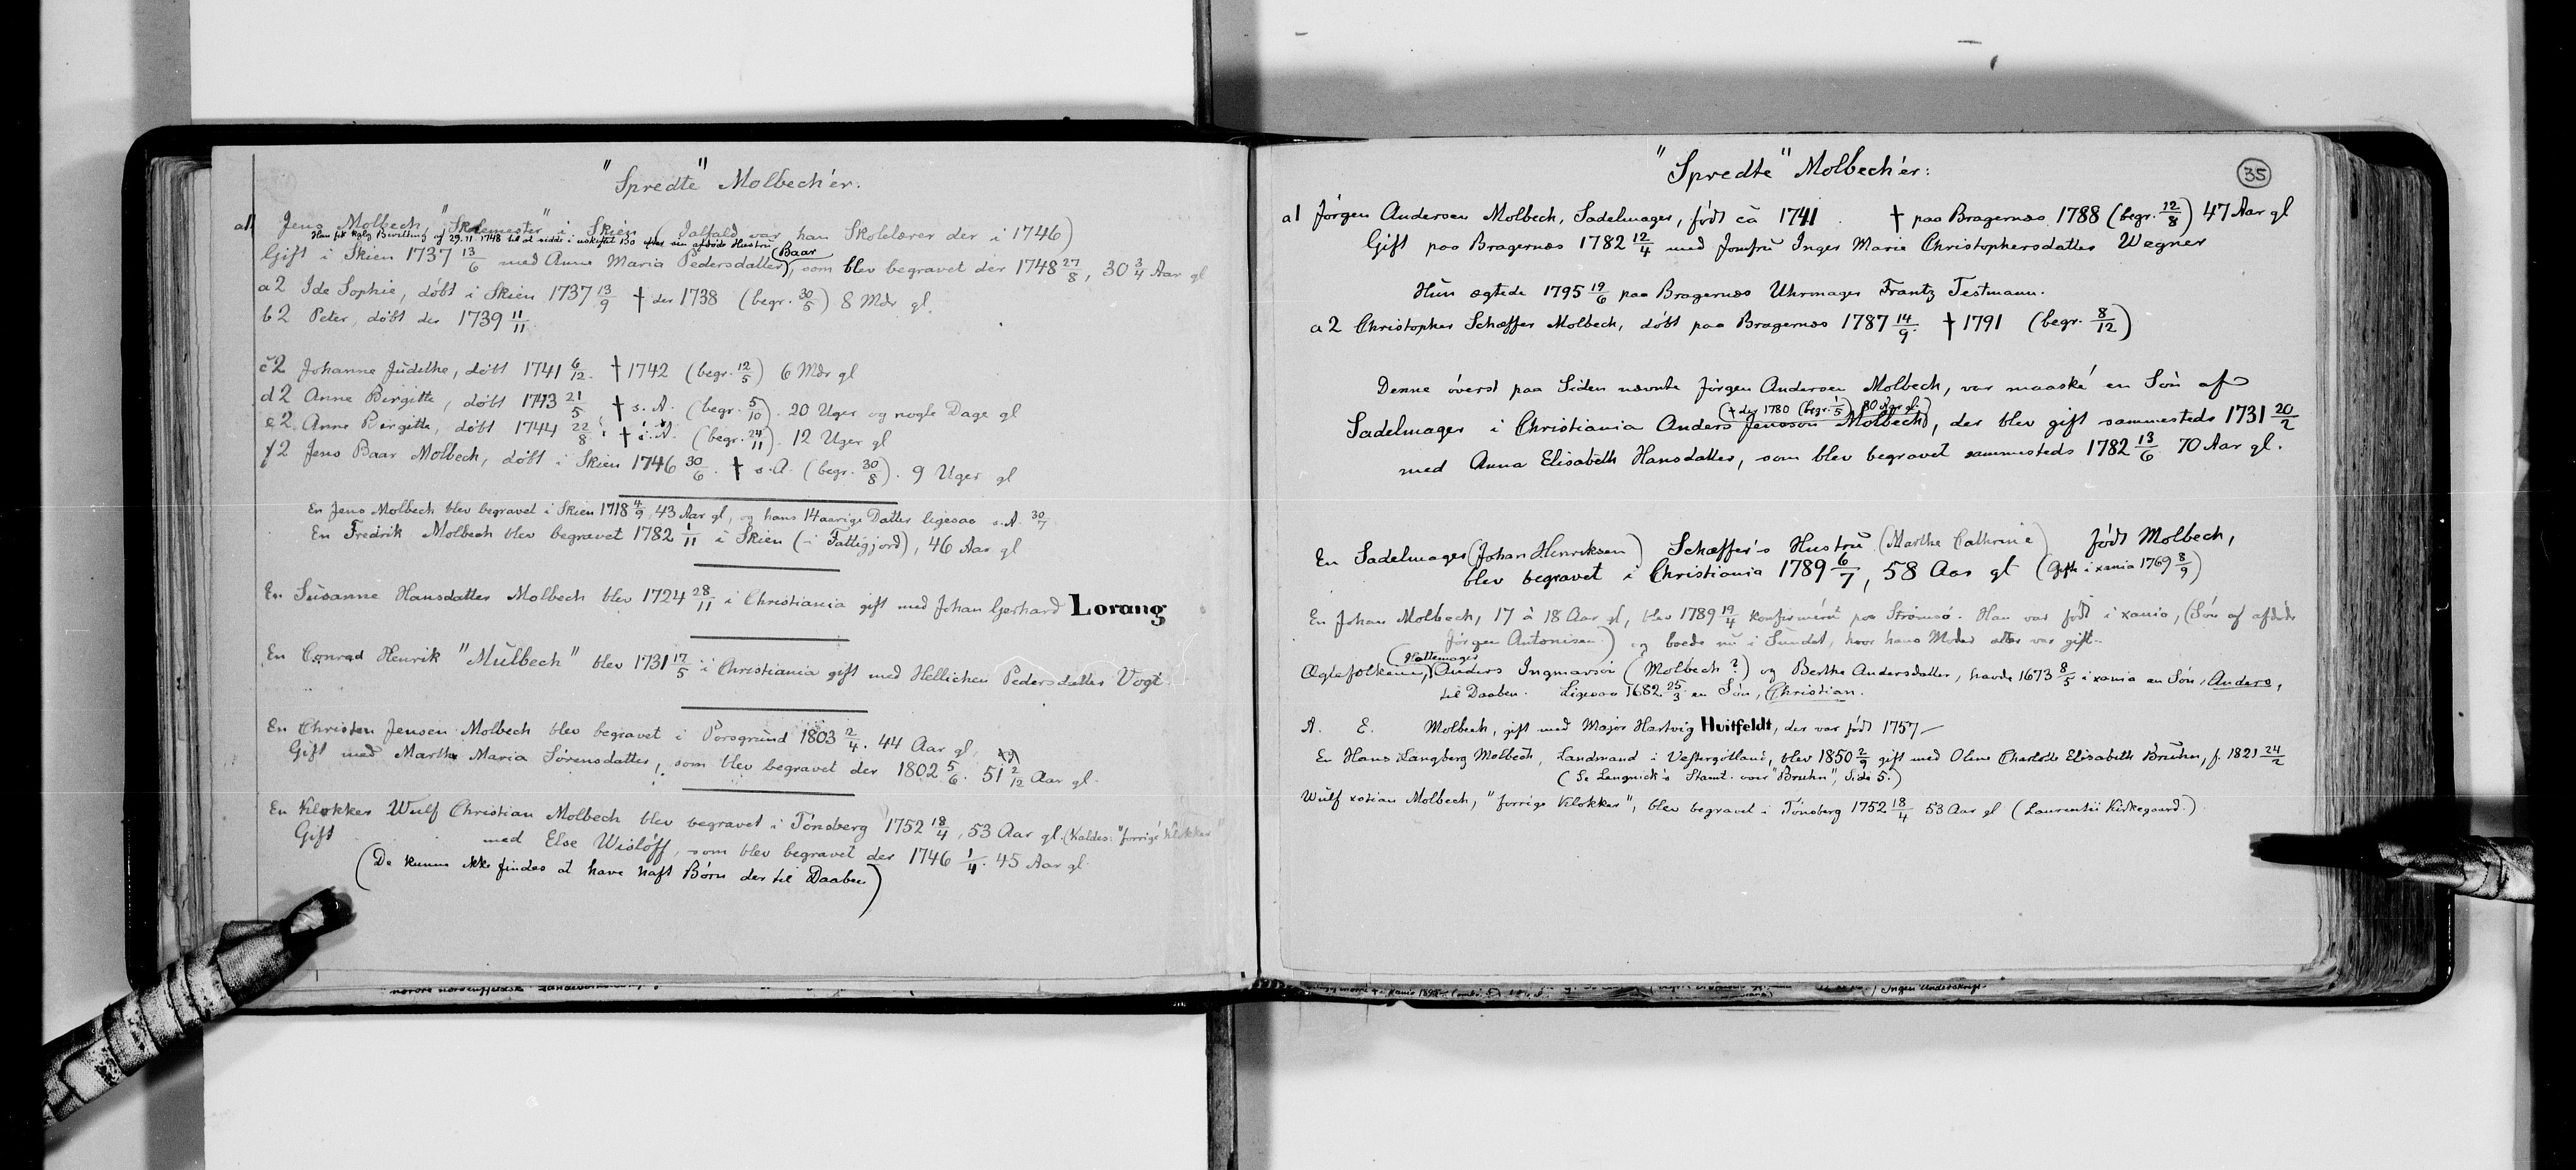 "Spredte" Molbech'er.
a1 Jens Molbech, "Skolemester" i Skien (Ialfald var han Skolelærer der i 1746)
Han fik Kglg Bevilling af 29.11 1748 til at sidde i uskiftet Bo efter sin afdøde Hustru
Gift i Skien 1737 13/6 med Anne Maria Pedersdatter (Baar), som blev begravet der 1748 27/8, 30 3/4 Aar gl
a2 Ide Sophie, døbt i Skien 1737 13/9 † der 1738 (begr. 30/5) 8 Mdr gl.
b2 Peter, døbt der 1739 11/11.
c2 Johanne Judethe, døbt 1741 6/12. † 1742 (begr. 12/5) 6 Mdr gl
d2 Anne Birgitte, døbt 1743 21/5 † s. A. (begr. 5/10). 20 Uger og nogle Dage gl
e2 Anne Birgitte, døbt 1744 22/8, † s. A. (begr. 24/11). 12 Uger gl
f2 Jens Baar Molbech, døbt i Skien 1746 30/6. † s. A. (begr. 30/8). 9 Uger gl
En Jens Molbech blev begravet i Skien 1718 4/9, 43 Aar gl, og hans 14 aarige Datter ligesaa s. A. 30/7
En Fredrik Molbech blev begravet 1782 1/11 i Skien (i Fattigjord), 46 Aar gl
En Susanne Hansdatter Molbech blev 1724 28/11 i Christiania gift med Johan Gerhard Lorang
En Conrad Henrik "Mülbech" blev 1731 17/5 i Christiania gift med Hellichen Pedersdatter Vogt
En Christen Jensen Molbech blev begravet i Porsgrund 1803 2/4. 44 Aar gl,
Gift med Marthe Maria Sørensdatter, som blev begravet der 1802 5/6. 51 2/12 Aar gl.
En Klokker Wulf Christian Molbech blev begravet i Tönsberg 1752 18/4, 53 Aar gl. (Kaldes: "forrige Klokker"
Gift med Else Wislöff, som blev begravet der 1746 1/4. 45 Aar gl.
(De kunne ikke findes at have haft Børn der til Daaben)
"Spredte" Molbech'er:
35
a1 Jörgen Andersen Molbech, Sadelmager, født ca 1741. † paa Bragernæs 1788 (begr. 12/8) 47 Aar gl
Gift paa Bragernæs 1782 12/4 med Jomfru Inger Marie Christophersdatter Wegner
Hun ægtede 1795 19/6 paa Bragernæs Uhrmager Frantz Testmann.
a2 Christopher Schæffer Molbech, døbt paa Bragernæs 1787 14/9. † 1791 (begr. 8/12)
Denne överst paa Siden nævnte Jörgen Andersen Molbech, var maaske en Sön af
(† der 1780 (begr. 1/5) 80 Aar gl.)
Sadelmager i Christiania Anders Jensson Molbech, der blev gift sammesteds 1731 20/2
med Anna Elisabeth Hansdatter, som blev begravet sammesteds 1782 13/6 70 Aar gl.
En Sadelmager (Johan Henriksen) Schæffer's Hustru (Marthe Cathrine) født Molbech,
blev begravet i Christiania 1789 6/7, 58 Aar gl (Gifte i xania 1769 8/9)
En Johan Molbech, 17 à 18 Aar gl, blev 1789 19/4 konfirmeret paa Strömsö. Han var født i xania, (Sön af afdøde
Jörgen Antonisen) og boede nu i Sundet, hvor hans Moder atter var gift.
(Hattemager)
Ægtefolkene, Anders Ingmarsön (Molbech?) og Berthe Andersdatter, havde 1673 8/5 i xania en Sön, Anders,
til Daaben. Ligesaa 1682 25/3 en Sön, Christian.
A. E. Molbech, gift med Major Hartvig Huitfeldt, der var født 1757 —
En Hans Langberg Molbech, Landmand i Vestergötland, blev 1850 2/9 gift med Oline Charlotte Elisabeth Bruhn, f. 1821 24/2
(Se Lengnick's Stamt. over "Bruhn", Side 5.)
Wulf xstian Molbech, "forrige Klokker", blev begravet i Tönsberg 1752 18/4 53 Aar gl (Laurentii Kirkegaard.)